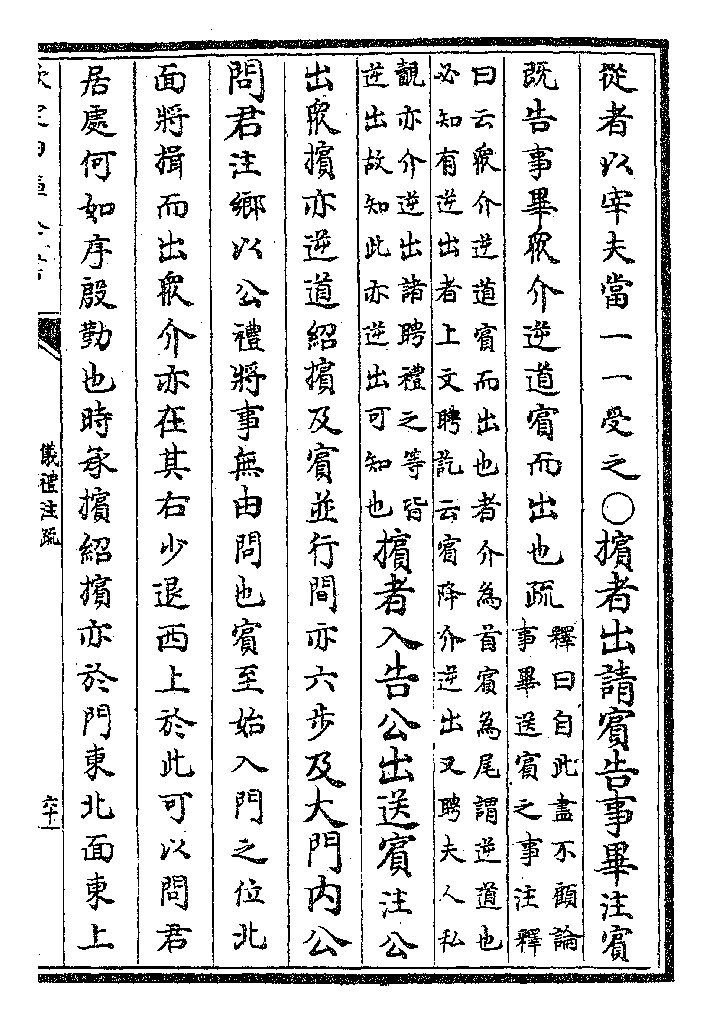 從者以宰夫當一一受之○擯者出請賓告事畢注賓
既告事畢衆介逆道賓而出也疏
釋曰自此盡不顧論
事畢送賓之事注釋
曰云衆介逆道賓而出也者介為首賓為尾謂逆道也
必知有逆出者上文聘訖云賓降介逆出又聘夫人私
覿亦介逆出諸聘禮之等皆
逆出故知此亦逆出可知也
擯者入告公出送賓注公
出衆擯亦逆道紹擯及賓並行間亦六步及大門内公
問君注鄉以公禮將事無由問也賓至始入門之位北
面將揖而出衆介亦在其右少退西上於此可以問君
居處何如序殷勤也時承擯紹擯亦於門東北面東上
儀禮注疏
六十一